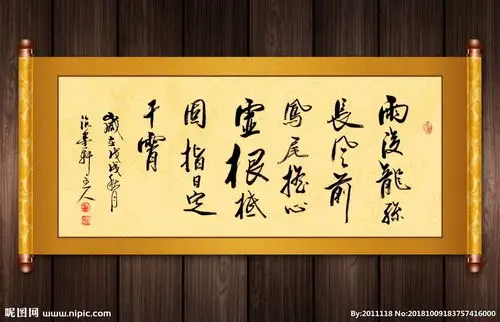 雨後龍孫
長風前
鳳尾搖心
虛根柢
固指日定
干霄
歲在戊戌秋月
墨軒主人
昵图网 www.nipic.com
By:2011118 No:20181009183757416000